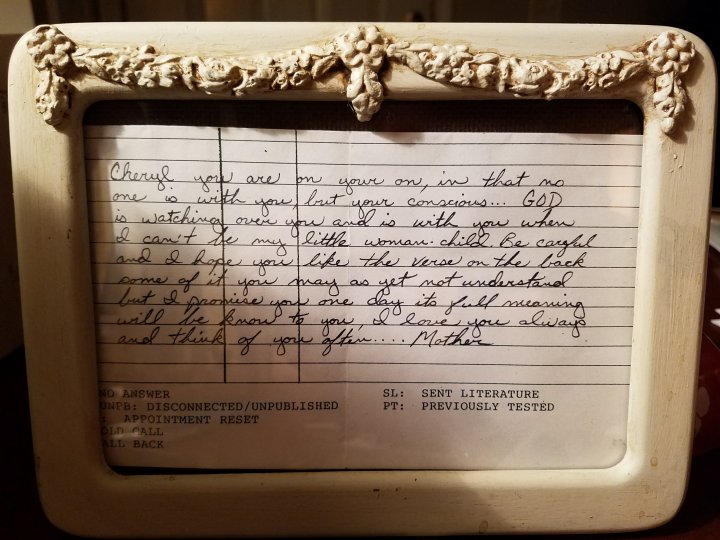 Cheryl you are on your on, in that no
one is with you, but your conscious... GOD
is watching over you and is with you when
I can't be my little woman-child. Be careful
and I hope you like the verse on the back
some of it you may as yet not understand
but I promise you one day its full meaning
will be know to you, I love you always
and think of you often.... Mother
NO ANSWER SL: SENT LITERATURE
UNPB: DISCONNECTED/UNPUBLISHED PT: PREVIOUSLY TESTED
: APPOINTMENT RESET
OLD CALL
ALL BACK